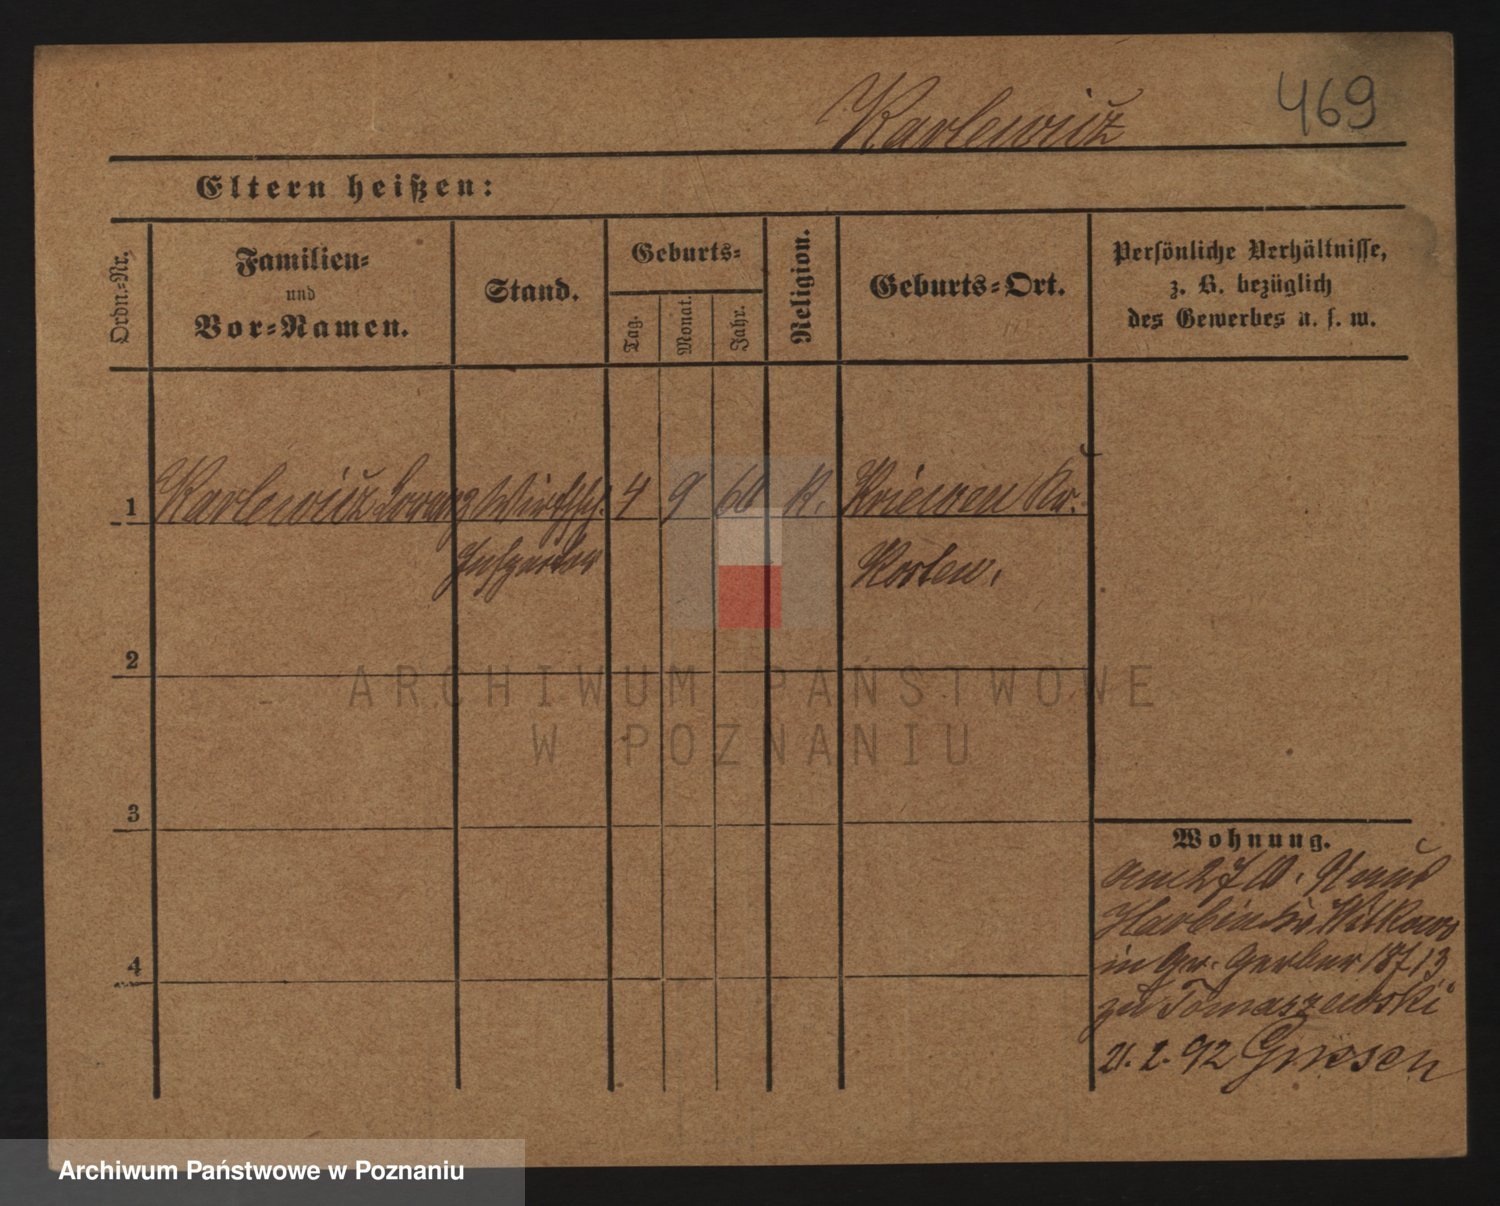 Karlewicz
469
Eltern heißen:
Ordn.-Nr.
Familien-
und
Vor-Namen.
Stand.
Geburts-
Tag.
Monat.
Jahr.
Religion.
Geburts-Ort.
Persönliche Verhältnisse,
z. B. bezüglich
des Gewerbes u. s. w.
1 Karlewicz Lorenz Wirthsch. 4 9 60 K. Kriewen Kr.
Kosten.
2
3
4
Wohnung.
Witkowo
in Gr. Gerber
zu Tomaszewski
21. 2. 92 Gnesen
ARCHIWUM PAŃSTWOWE
W POZNANIU
Archiwum Państwowe w Poznaniu